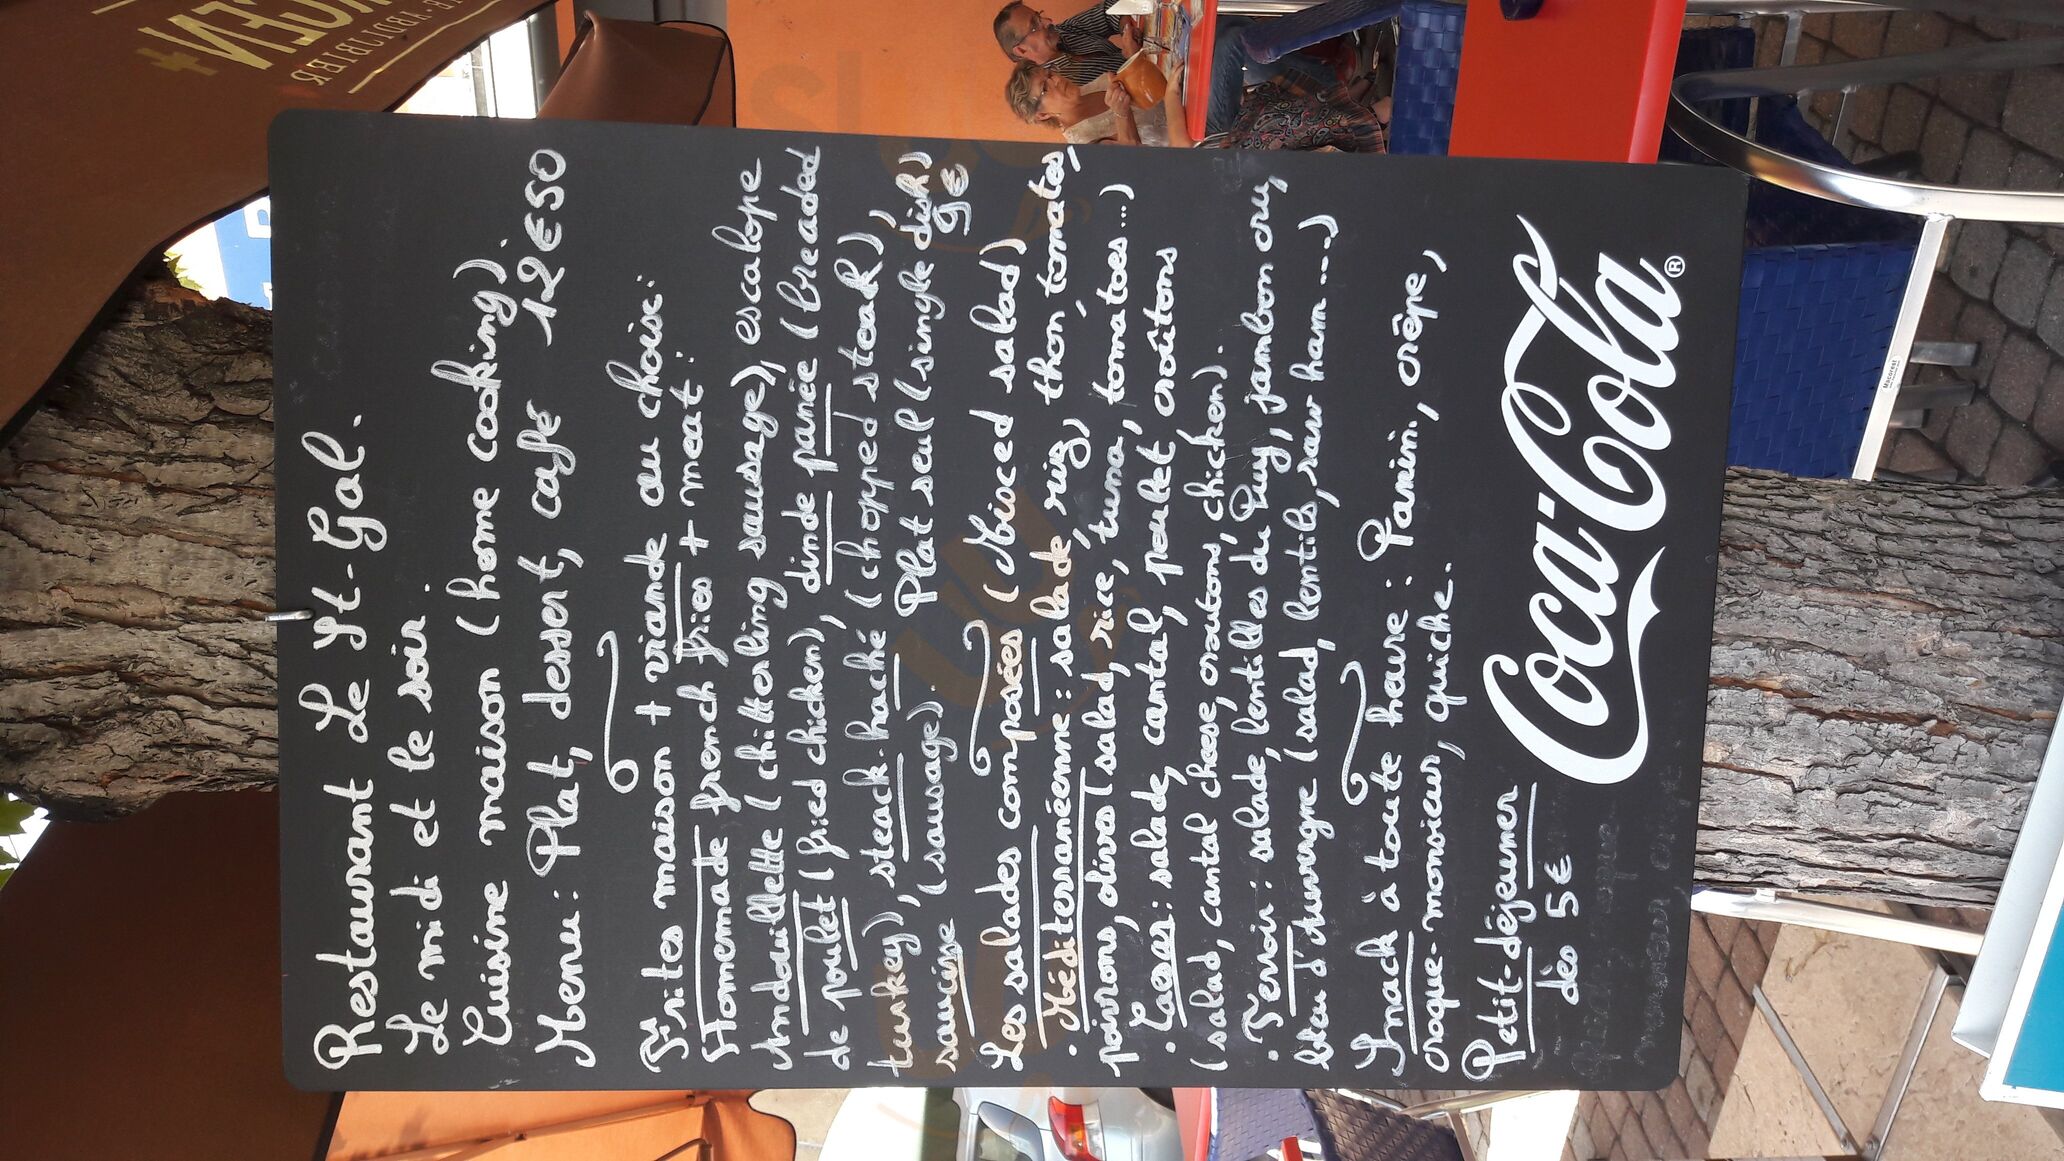 Restaurant Le St-Gal.
Le midi et le soir.
Cuisine maison (home cooking).
Menu: Plat, dessert, café 12€50
Frites maison + viande au choix:
Homemade french fries + meat:
Andouillette (chitterling sausage), escalope
de poulet (fried chicken), dinde panée (breaded
turkey), steack-haché (chopped steack),
saucisse (sausage). Plat seul (single dish)
9€
Les salades composées (Mixed salad)
. Méditerranéenne: salade, riz, thon tomates,
poivrons, olives (salad, rice, tuna, tomatoes...)
. Caesar: salade, cantal, poulet, croûtons
(salad, cantal cheese, croutons, chicken).
. Terroir: salade, lentilles du Puy, jambon cru,
bleu d'Auvergne (salad, lentils, raw ham....)
Snack à toute heure: Panini, crêpe,
croque-monsieur, quiche.
Petit-déjeuner
dès 5€
Coca-Cola®